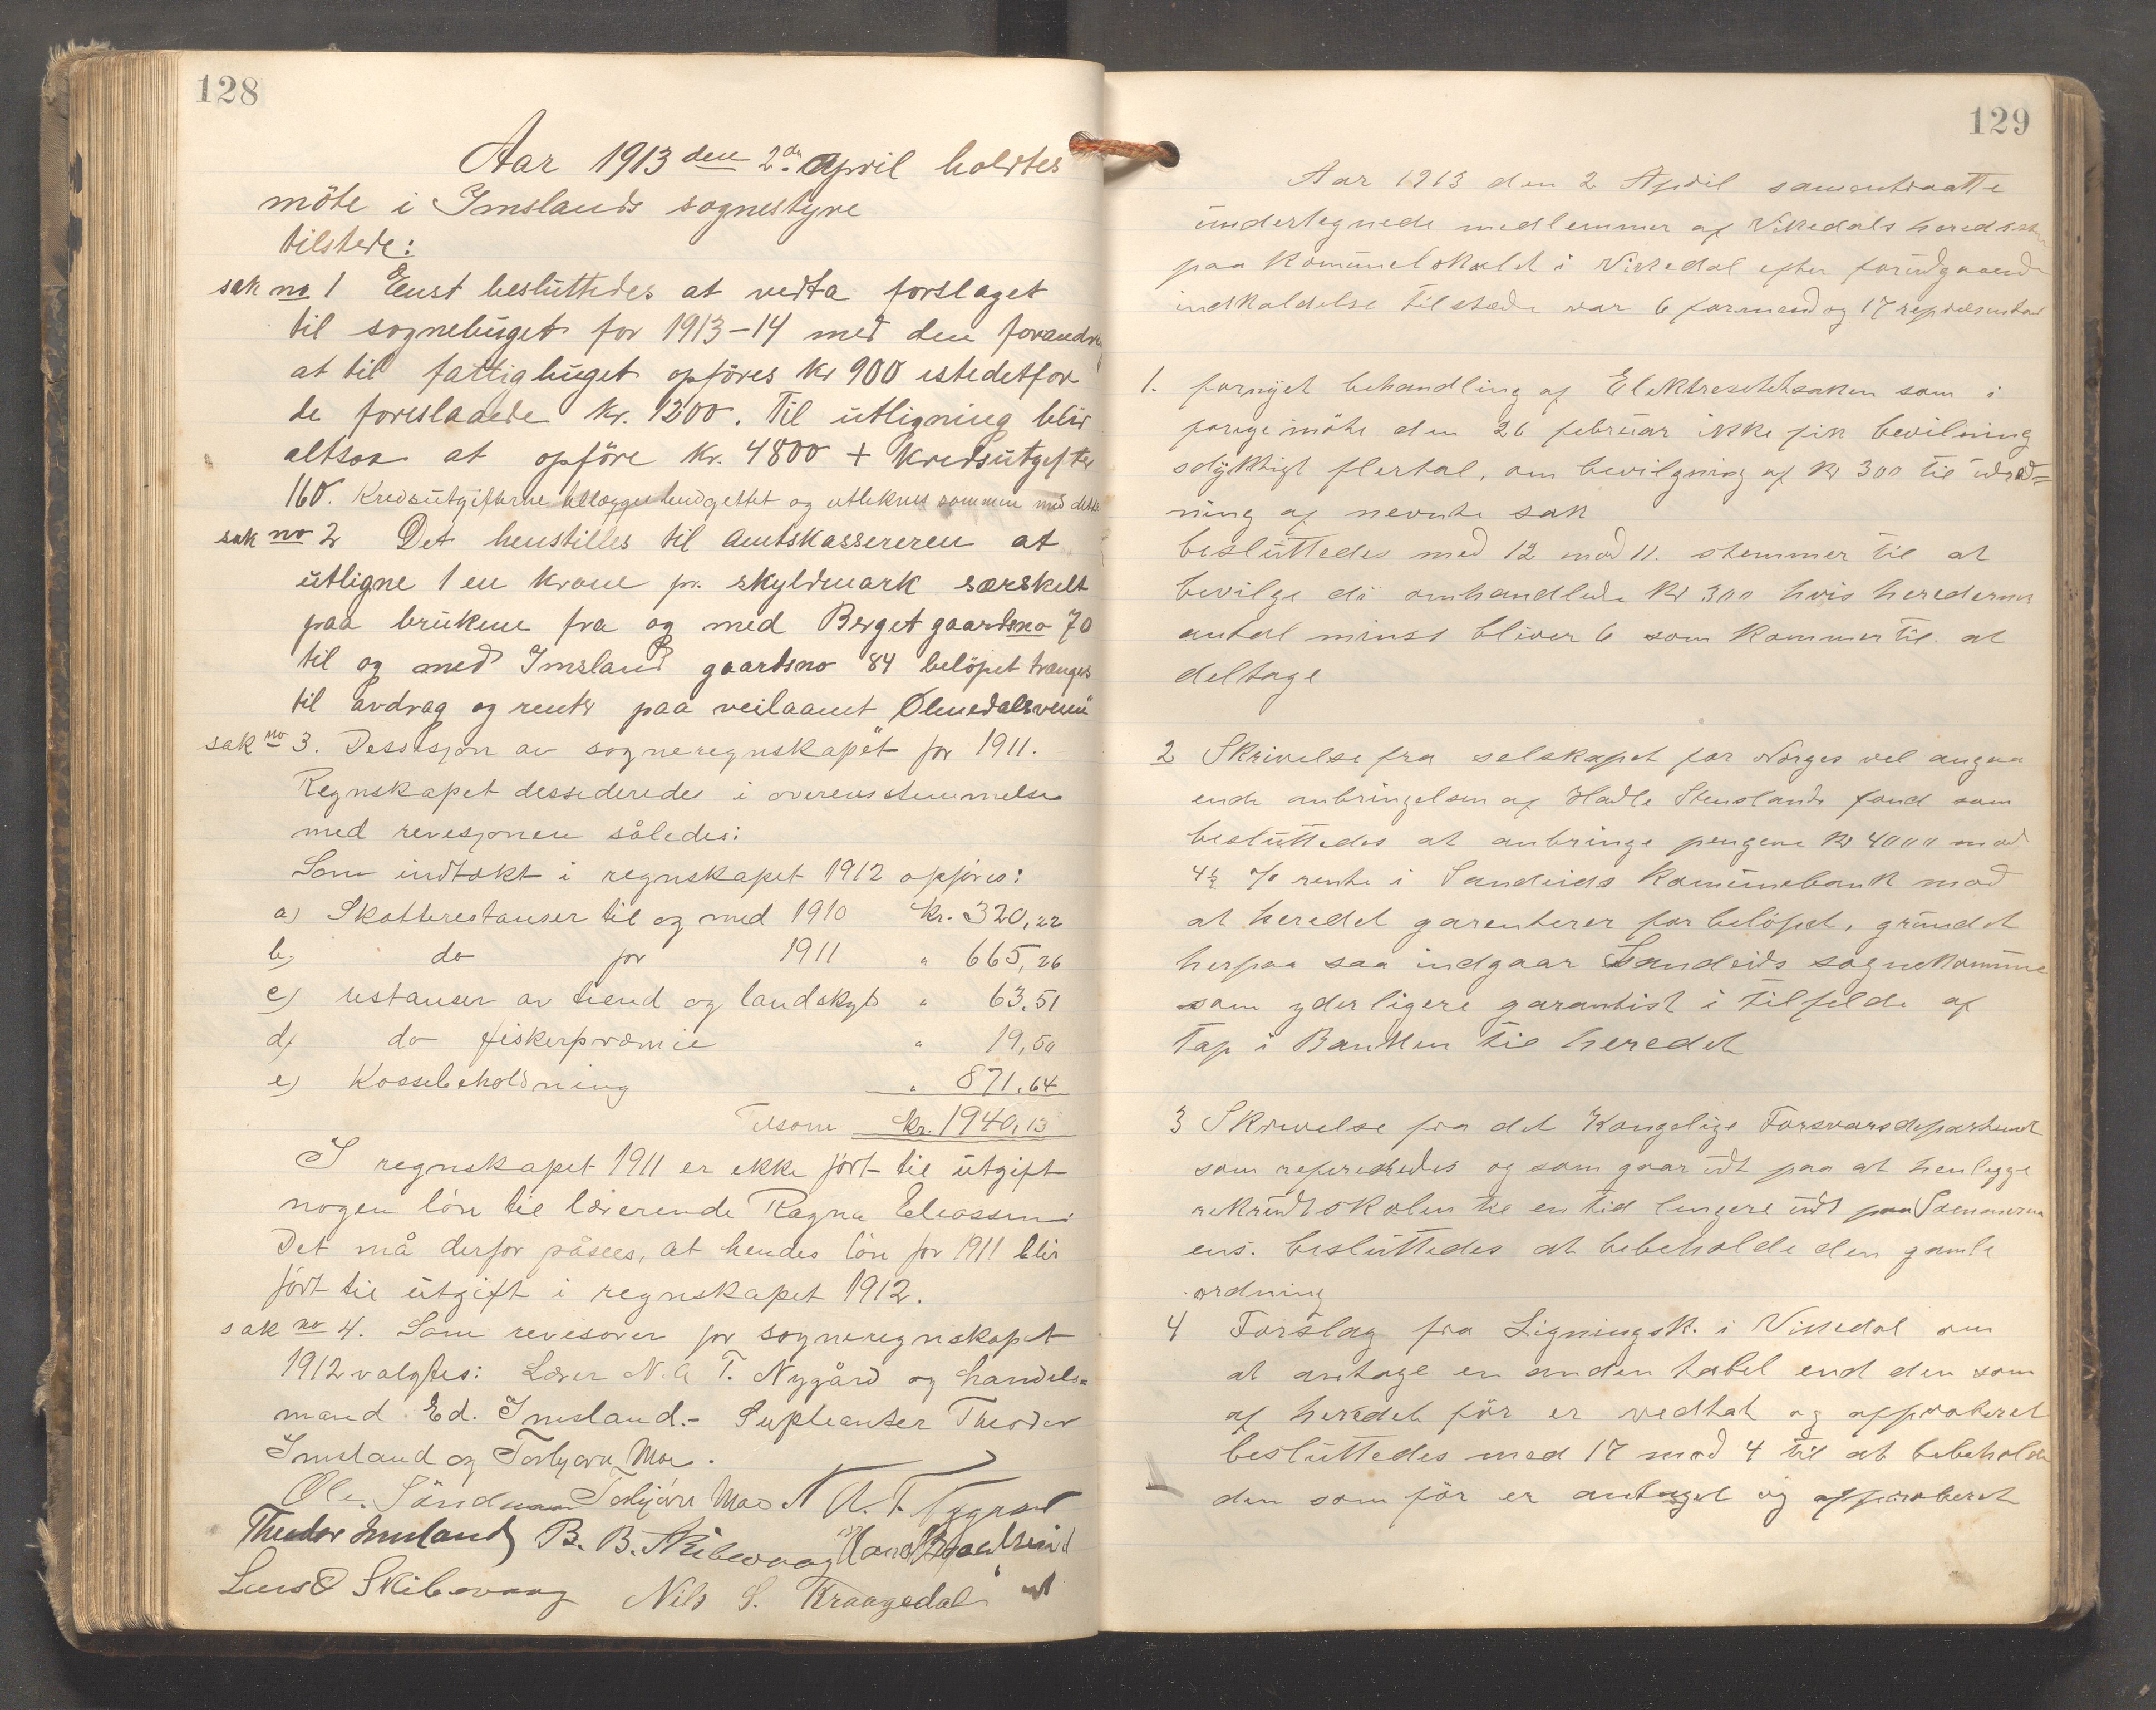 128
Aar 1913 den 2den April holdtes
möte i Imslands sognestyre
tilstede:
sak no 1 Enst beslüttedes at vedta forslaget
til sognebüget for 1913-14 med den forandr
at til fattigbüget opföres kr 900 istedetfor
de foreslaaede kr. 1200. Til ütligning blir
altsaa at opföre kr. 4800 + kredsütgifter
160. Kredsütgifterne tillægges budgettet og utliknes sammen med dette
sak no 2 Det henstilles til Amtskassereren at
ütligne 1 en krone pr. skyldmark særskelt
paa brükene fra og med Berget gaardsno 70
til og med Imsland gaardsno 84 belöpet trænges
til avdrag og renter paa veilaanet Ølmedalsveien
sak no 3. Dessisjon av sogneregnskapet for 1911.
Regnskapet dessideredes i overensstemmelse
med revesjonen således:
Som indtækt i regnskapet 1912 opföres:
a) Skatterestanser til og med 1910 kr. 320,22
b) do for 1911 " 665,26
c) restanser av tiend og landskyld " 63.51
d) do fiskerpræmie " 19,50
e) Kassebeholdning " 871.64
Tilsam kr. 1940,13
I regnskapet 1911 er ekke fört til ütgift
nogen lön til lærerende Ragna Eleassen
Det må derfor påsees, at hendes lön for 1911 blir
fört til ütgift i regnskapet 1912.
sak no 4. Som revesorer for sogneregnskapet
1912 valgtes: Lærer N. A. T. Nygård og handels=
mand Ed. Imsland.- Supleanter Theodor
Imsland og Torbjørn Moe.
Ole. Söndnaa Torbjörn Moe N A. T. Nygaard
Theodor Imsland B. B. Skibevaag
Lars O Skibevaag Nils S. Kraagedal
129
Aar 1913 den 2 April samentraatte
ündertegnede medlemmer af Vikedals heredssty
paa Kommünelokalet i Vikedal efter forüdgaaende
indkaldelse Tilstæde var 6 formænd og 17 repræsentan
1. fornyet behandling af Elektresitetsaken som i
forige möte den 26 februar ikke fik bevilning
sdyktigt flertal, om bevilgning af kr 300 til üdred=
ning af nevnte sak
beslüttedes med 12 mod 11. stemmer til at
bevilge di omhandlede kr 300 hvis heredernes
antal minst bliver 6 som kommer til at
deltage
2 Skrivelse fra selskapet for Norges vel angaa
ende anbringelsen af Hadle Stenslands fond som
beslüttedes at anbringe pengene kr 4000 mod
4½ % rente i Sandeids Komünebank mod
at heredet garenterer for belöpet, gründet
herpaa saa indgaar Sandeids sognekomüne
som yderligere garantist i Tilfelde af
Tap i Banken til heredet
3 Skrivelse fra det Kongelige Forsvarsdepartement
som refereredes og som gaar üdt paa at henlegge
rekrüdtskolen til en tid lengere üdt paa Sommeren
ens. beslüttedes at bebeholde den gamle
ordning
4 Forslag fra Ligningsk. i Vikedal om
at antage en anden tabel end den som
af heredet för er vedtat og approberet
beslüttedes med 17 mod 4 til at bebeholde
den som för er antaget og approberet